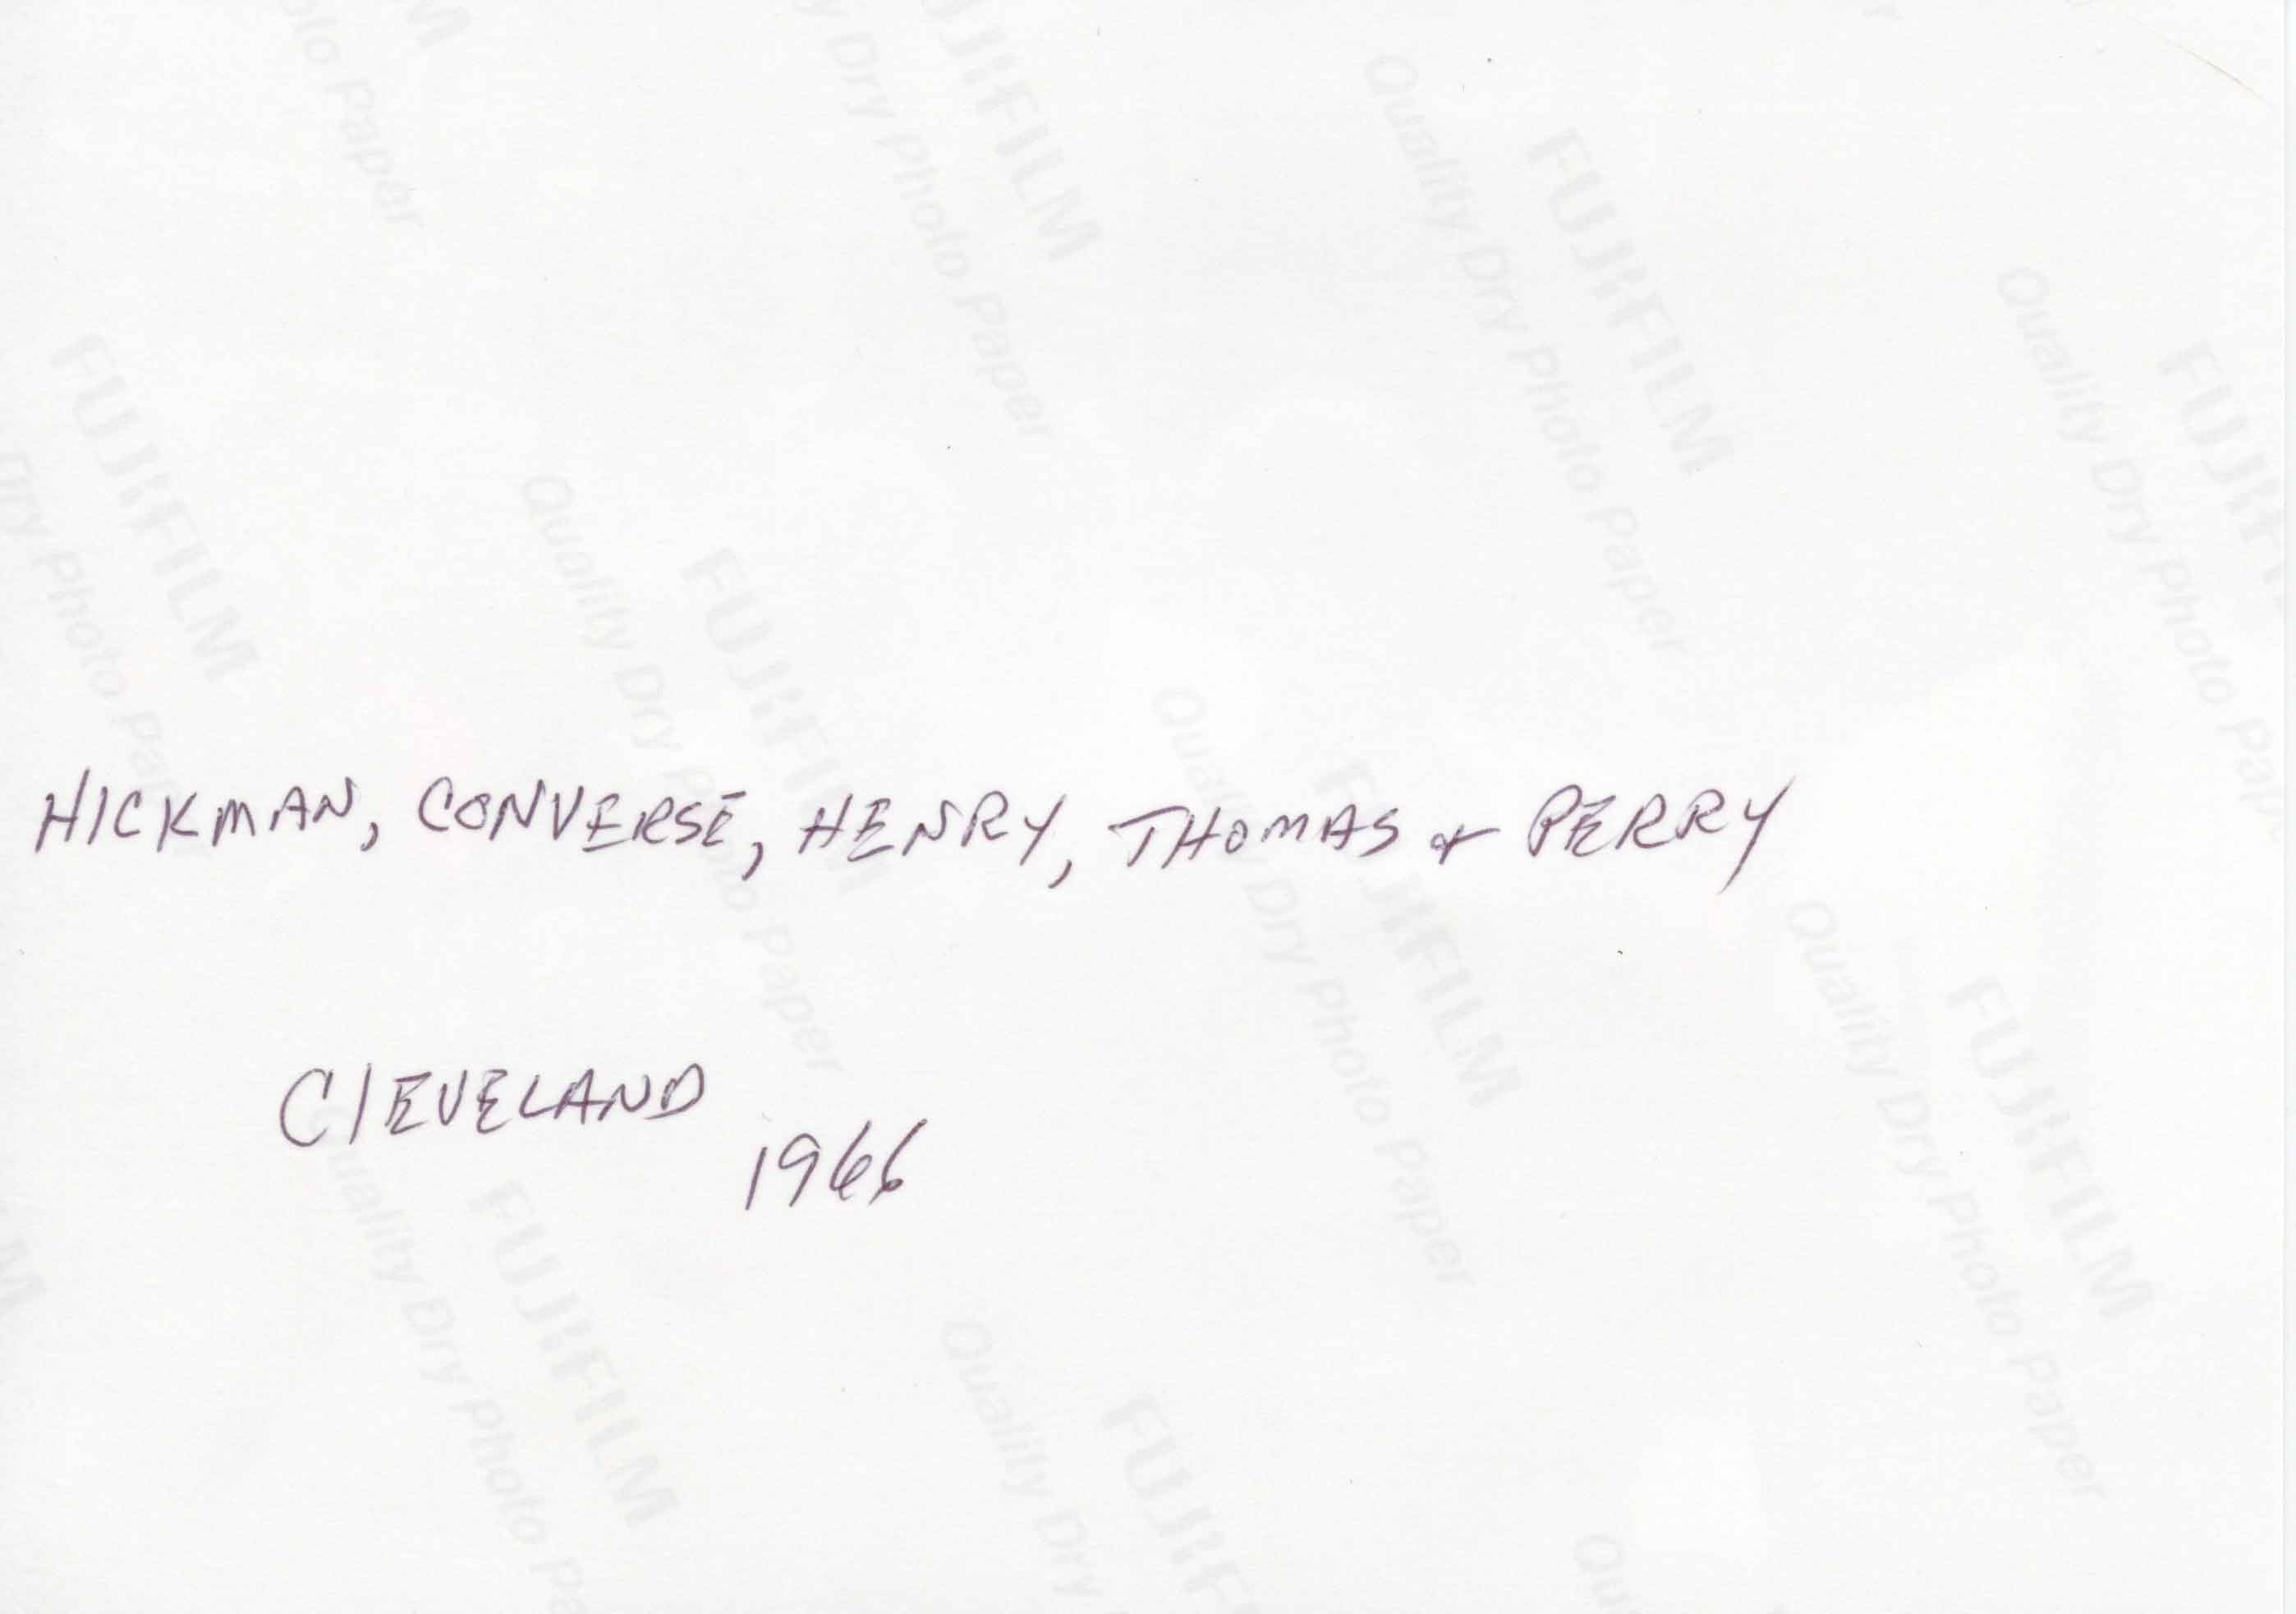 HICKMAN, CONVERSE, HENRY, THOMAS & PERRY
CLEVELAND
1966
FUJIFILM
Quality Dry Photo Paper